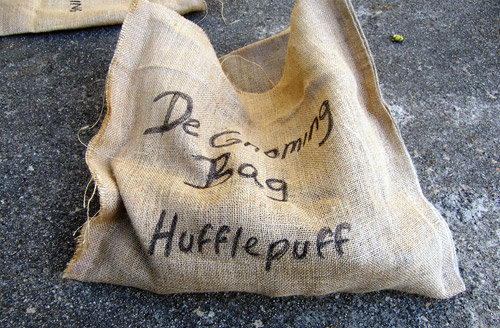 De Gnoming
Bag
Hufflepuff